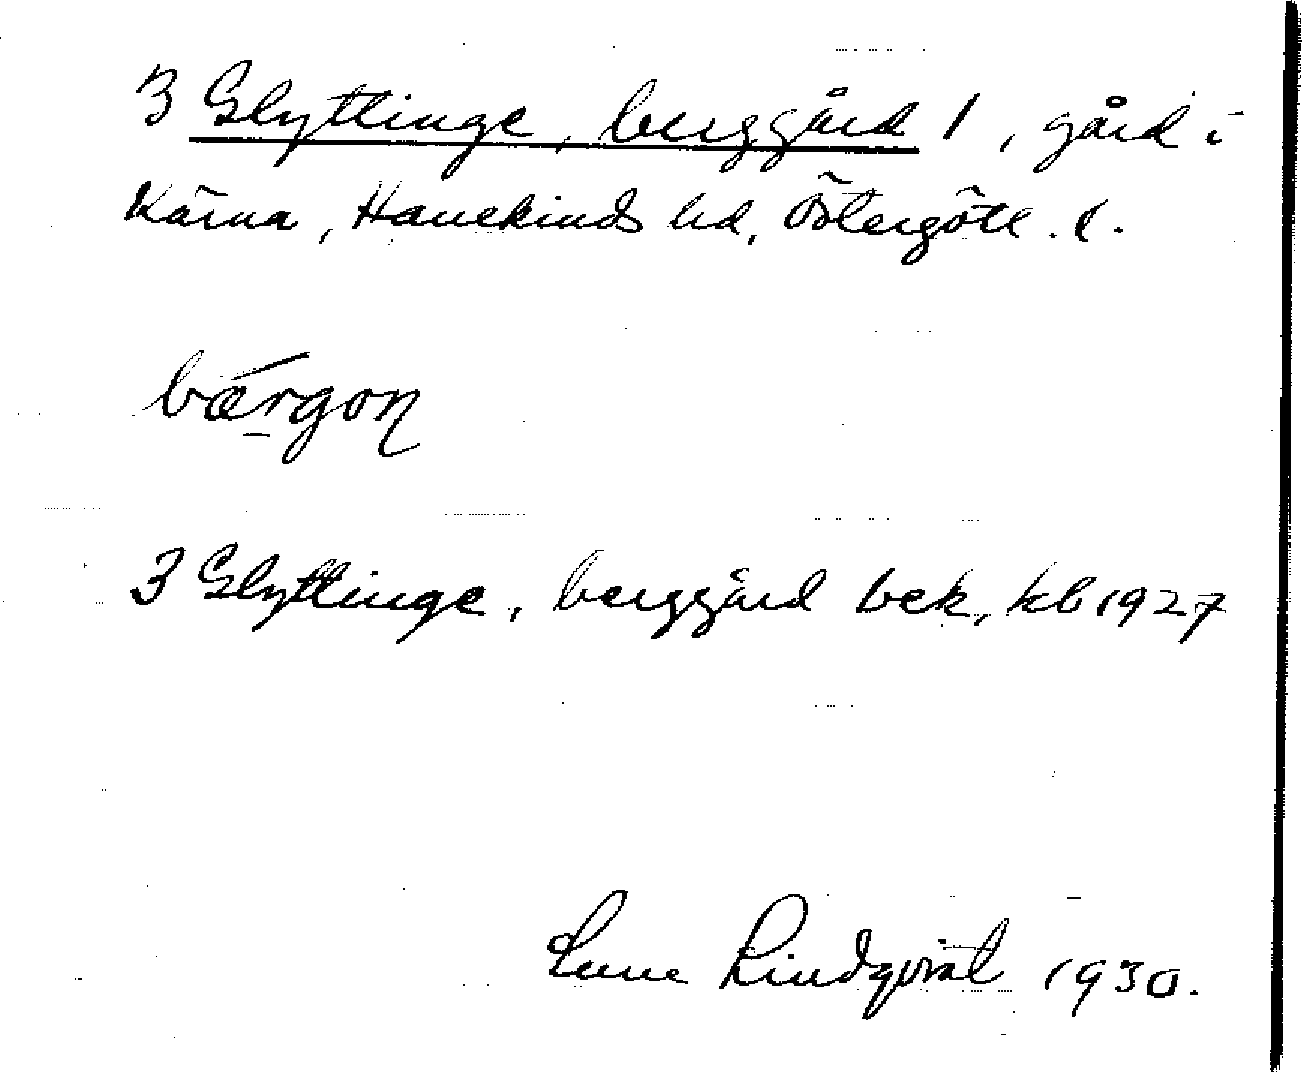 3 Glyttinge, berggård 1, gård i
Kärna, Hanekinds hd, Östergötl. l.
bærgon
3 Glyttinge, berggård bek, kb 1927
Sune Lindqvist 1930.